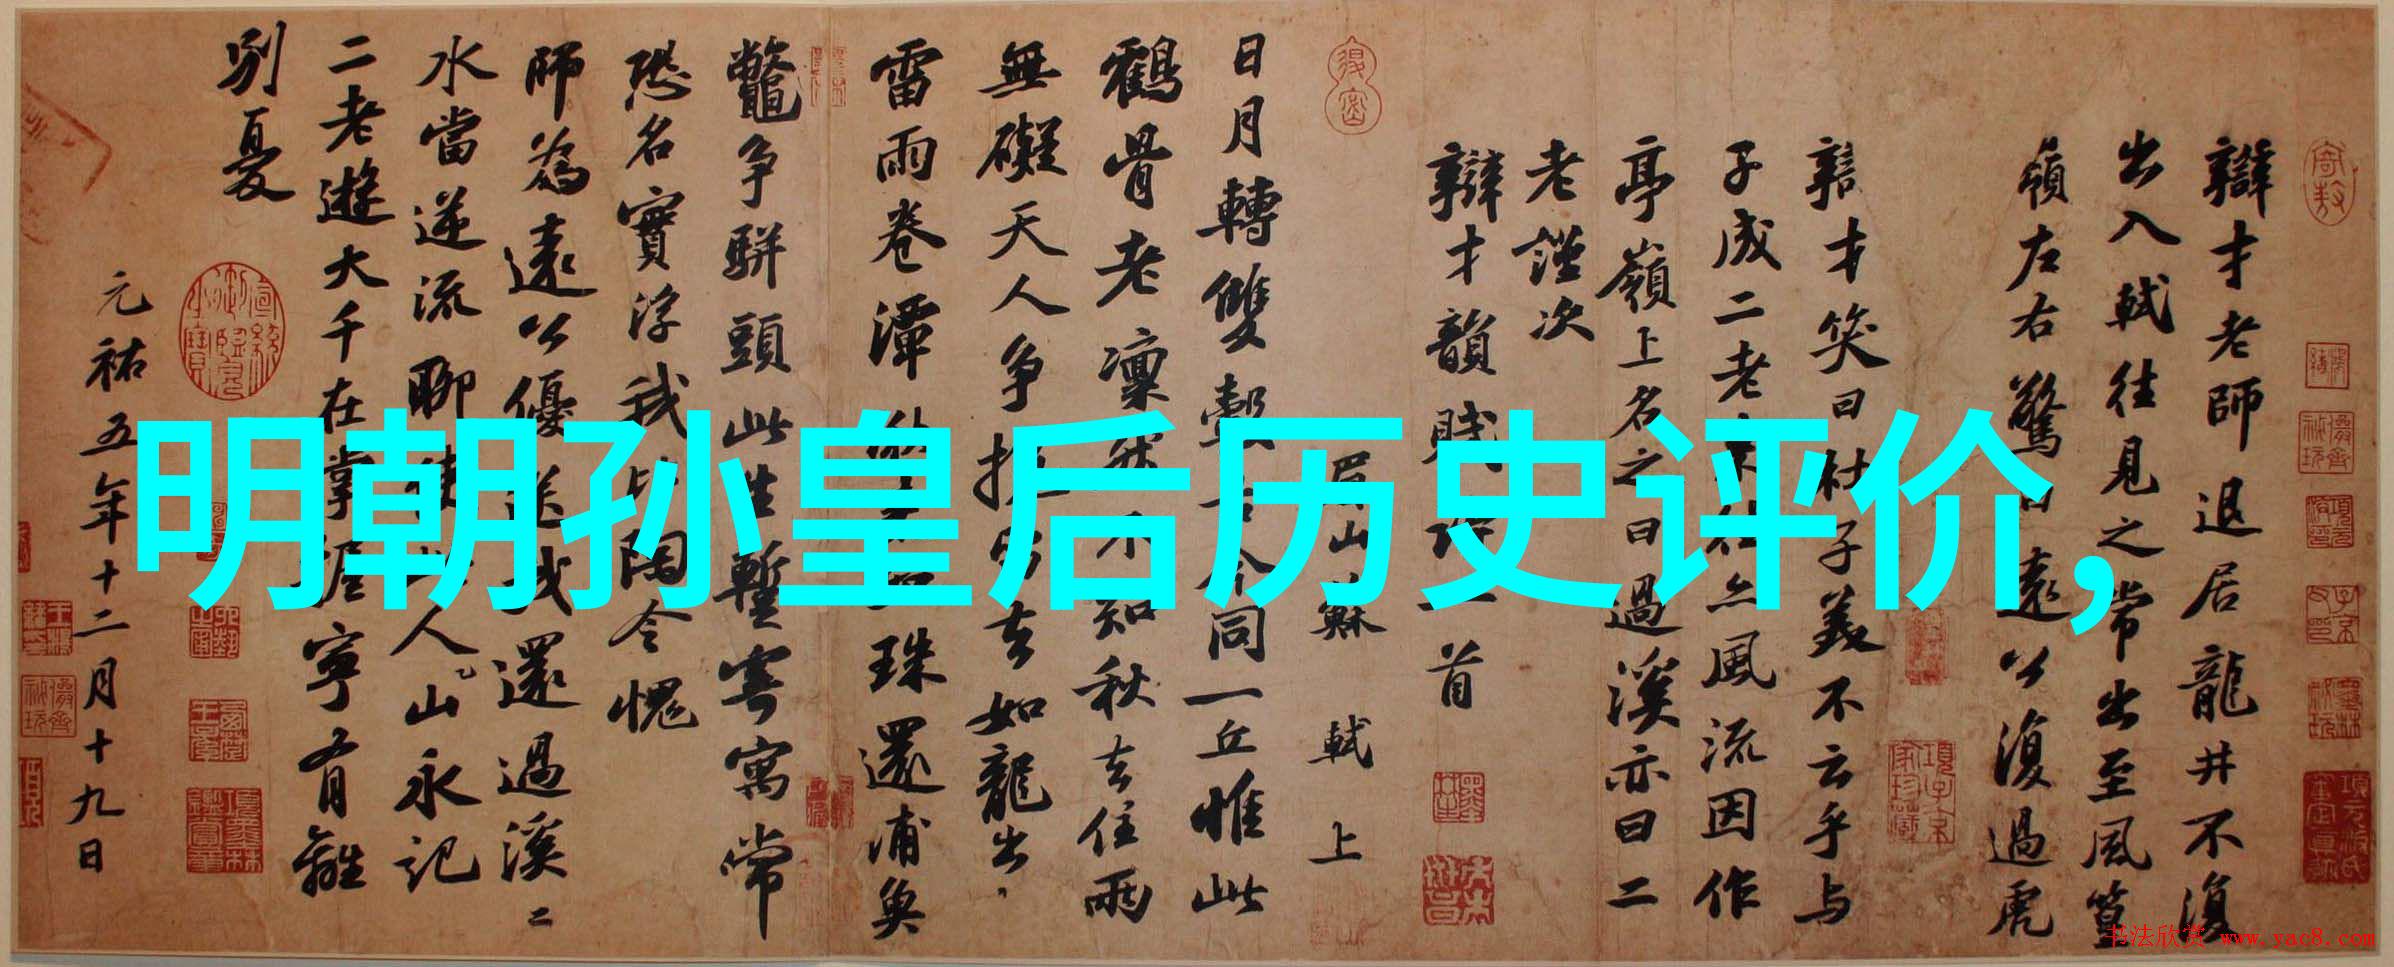 辯才老師退居龍井不復
出入軾往見之常出至風篁
嶺左右驚曰遠公復過虎
辯才笑曰杜子美不云乎与
子成二老來往亦風流因作
亭嶺上名之曰過溪亦曰二
老謹次
辯才韻賦詩一首
眉山蘇軾上
日月轉雙轂古今同一丘惟此
鶴骨老凜然不知秋去住兩
無礙天人爭挽留去如龍出
雷雨卷潭湫來如珠還浦魚
鼈爭駢頭此生暫寄寓常
恐名實浮我比陶令愧
師為遠公優送我還過溪二
水當逆流聊使此山人山永記
二老遊大千在掌握寧有離
別憂
元祐五年十二月十九日
明朝孙皇后历史评价,
书法欣赏 www.yac8.com